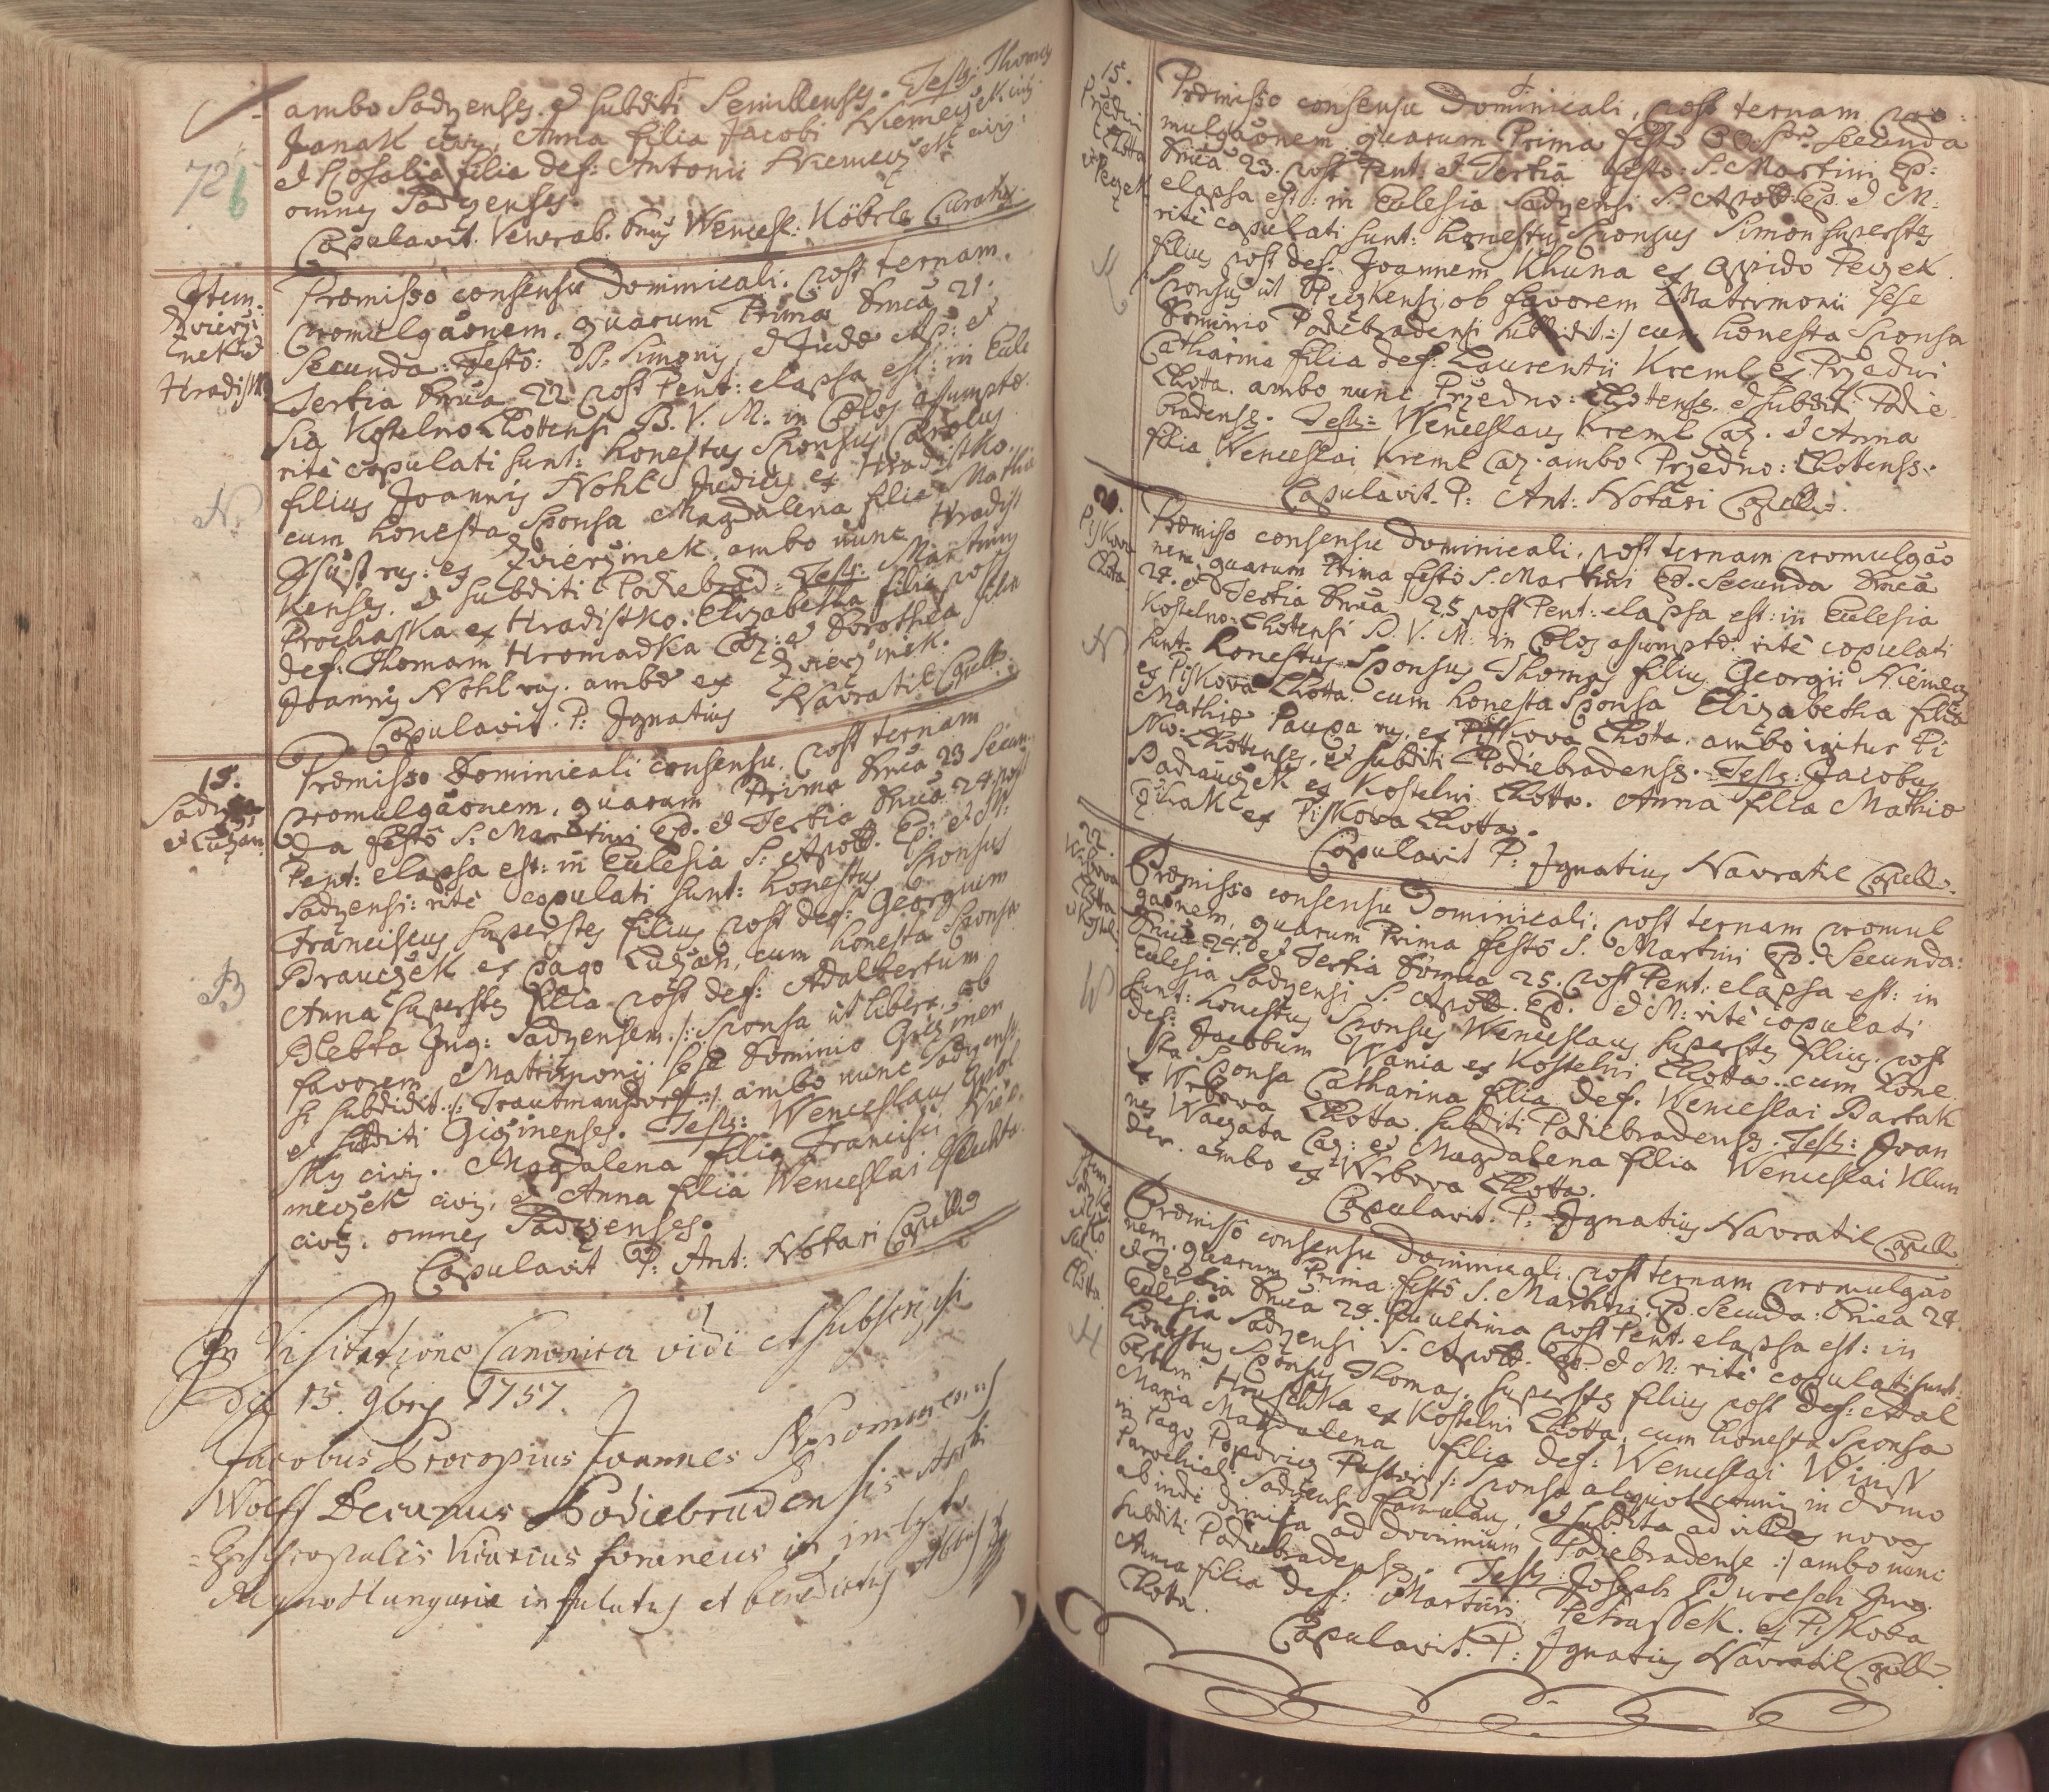 ambo Sadzenses et subditi Semillenses. Test: Thomas
Janak civ: Anna filia Jacobi Niemeczek civ:
et Rosalia filia def: Antonii Niemeczek civ:
omnes Sadzenses.
Copulavit. Venerab. Dnus Wencesl: Köbrle Curatus
726
Item.
Zvierzi
nek et
Hradistk
Praemisso consensu Dominicali. post ternam
promulgaõnem, quarum Prima Dnica 21.
Secunda: Festo: SS. Simonis et Judae Ap: et
Tertia Dnica 22 post Pent: elapsa est: in Eccle
sia Kostelno Lhottensi B. V. M: in Coelos assumptae
ritè copulati sunt: honestus Sponsus Carolus
filius Joannis Nohl Judicis ex Hradistko.
cum honesta Sponsa Magdalena filia Mathiae
rus: ex Zvierzinek. ambo nunc Hradist
kenses. et subditi Podiebrad: Test: Martinus
Prochaska ex Hradistko. Elizabetha filia post
def: Thomam Hromadka Cas: et Dorothea filia
Joannis Nohl rus. ambae ex Zvierzinek.
Copulavit. P: Ignatius Navratil Capell:
N
15.
Sadzka
et Luzan
Praemisso Dominicali consensu. post ternam
promulgaõnem, quarum Prima Dnica 23 Secun
da Festo S: Martini Ep. et Tertia Dnica 24 post
Pent: elapsa est: in Ecclesia S: Apoll. Ep: et M:
Sadzensi: ritè copulati sunt: honestus Sponsus
Franciscus superstes filius post def: Georgium
Brauczek ex pago Luzan, cum honesta Sponsa
Anna superstes filia post def: Adalbertum
Blehta Inq: Sadzensem. /: Sponsa ut libera, ob
favorem Matrimonii sese Dominio Giczinen
si subdidit :/ Trautmansdorf :/ ambo nunc Sadzenses
et subditi Giczinenses. Test: Wenceslaus
sky civis. Magdalena filia Francisci Nie
meczek civis, et Anna filia Wenceslai
civis. omnes Sadzenses.
Copulavit P: Ant: Notari Capell
B
In Visitatione Canonica vidi et subscripsi
die 15. 9bris 1757.
Jacobus Procopius Joannes Nepomucenus
Wolff Decanus Podiebradensis
Episcopalis Vicarius foraneus in inclyto
Regno Hungariae infulatus et benedictus Abbas
15.
Przedni
Lhotta
et Peczek
Praemisso consensu Dominicali, post ternam pro
mulgaõnem quarum Prima festo OO. SS. Secunda
Dnica 23. post Pent: et Tertia festo: S: Martini Ep:
elapsa est: in Ecclesia Sadzensi S. Apoll: Ep. et M:
ritè copulati sunt: honestus Sponsus Simon superstes
filius post def: Joannem Khuna ex oppido Peczek
Sponsus ut Peczkensis ob favorem Matrimonii sese
Dominio Podiebradensi subdidit :/ cum honesta Sponsa
Catharina filia def: Laurentii Kreml ex Przedni
Lhotta. ambo nunc Przedno: Lhottenses. et subditi Podie
bradenses. Test: Wenceslaus Kreml Cas. et Anna
filia Wenceslai Kreml Cas. ambo Przedno: Lhottenses.
Copulavit. P: Ant: Notari Capell.
20.
Piskova
Lhota
Praemisso consensu Dominicali, post ternam promulgaõ
nem, quarum Prima festo S. Martini Ep. Secunda Dnica
24. et Tertia Dnica 25 post Pent: elapsa est: in Ecclesia
Kostelno: Lhottensi B. V. M: in Coelos assumptae ritè copulati
sunt: honestus Sponsus Thomas filius Georgii Niemecz
ex Piskova Lhotta. cum honesta Sponsa Elizabetha filia
Mathiae Paupa rus. ex Piskova Lhota. ambo igitur Pi
sko: Lhottenses, et subditi Podiebradenses. Test: Jacobus
Badiauczek ex Kostelni Lhotta. Anna filia Mathiae
Zikrak ex Piskova Lhotta.
Copulavit P: Ignatius Navratil Capell.
N
22.
Wrbova
Lhota
et Kostel
Praemisso consensu Dominicali, post ternam promul
gaõnem, quarum Prima festo S. Martini Ep. Secunda:
Dnica 24. et Tertia Dnica 25. post Pent: elapsa est: in
Ecclesia Sadzensi S. Apoll. Ep. et M: ritè copulati
sunt: honestus Sponsus Wenceslaus superstes filius. post
def: Jacobum Wania ex Kostelni Lhotta. cum hone
sta Sponsa Catharina filia def. Wenceslai Bartak
ex Wrbova Lhotta. subditi Podiebradenses. Test: Joan
nes Waczata Cas: et Magdalena filia Wenceslai Klun
der. ambo ex Wrbova Lhotta.
Copulavit. P: Ignatius Navratil Capell
W
Item
Sadzka
et Ko
stel:
Lhota.
Praemisso consensu Dominicali. post ternam promulgaõ
nem, quarum Prima: festo S. Martini. Ep. Secunda: Dnica 24.
et Tertia Dnica 24. seu ultima post Pent. elapsa est: in
Ecclesia Sadzensi S. Apoll. Ep. et M: ritè copulati sunt:
honestus Sponsus Thomas superstes filius post def: Adal
bertum Hruschka ex Kostelni Lhotta, cum honesta Sponsa
Maria Magdalena filia def: Wenceslai
in Pago Popovicz Pastoris /: Sponsa aliquot annis in domo
Parochiali Sadzensi famulans, et subdita ad villas novas
ab inde dimissa ad Dominium Podiebradense :/ ambo nunc
subditi Podiebradenses. Test: Joseph Buresch Inq.
Anna filia def: Martini Petrassek. ex Piskova
Lhotta.
Copulavit. P: Ignatius Navratil Capell.
H